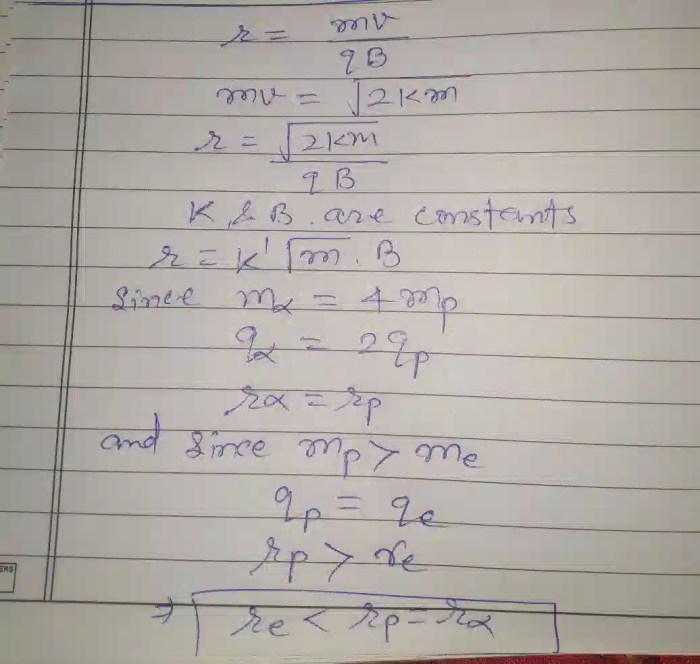 r = mv / qB
mv = √2Km
r = √2Km / qB
K & B are constants
r = K' √m . B
Since mα = 4mp
qα = 2qp
rα = rp
and since mp > me
qp = qe
rp > re
⇒ re < rp = rα
ERS